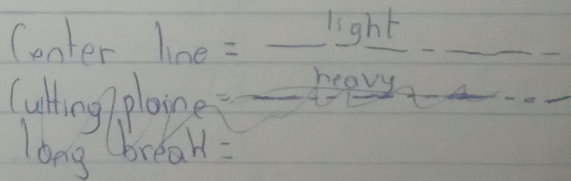 Center line = light
Cutting plaine = heavy
long break =